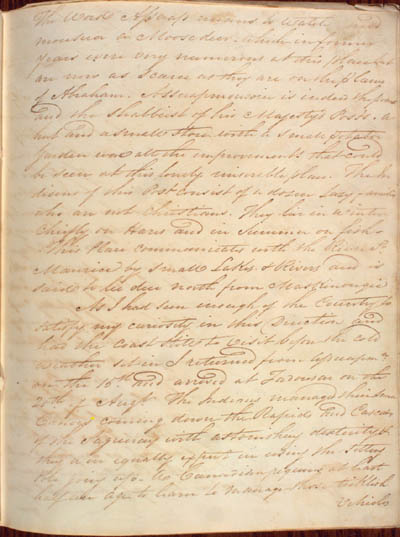 The Word Assuap means to Watch and
monsoin a Moose deer. which in former
years were very numerous at this place but
are now as scarce as they are on the plains
of Abraham. Assuapmousoin is indeed the poorest
and the shabbiest of his Majesty's Posts. a
hut and a small Store with a small potatoe
Garden was all the improvements that could
be seen at this lonely miserable place. The In
dians of this Post consist of a dozen lazy families
who are not Christians. They live in Winter
chiefly on Hares and in Summer on fish.
This place communicates with the River St.
Maurice by small Lakes & Rivers and is
said to lie due north from Maskinongé
As I had seen enough of the Country to
satisfy my curiosity in this Direction and
had the Coast still to visit before the cold
weather set in I returned from
on the 16th and arrived at Tadousac on the
20th of Augt. The Indians managed their
Canoes coming down the Rapids and Cascades
of the Saguenay with astonishing dexterity &
they are equally expert in using the Setting
Pole going up. No Canadian requires at least
half an age to learn to manage those ticklish
Vehicles